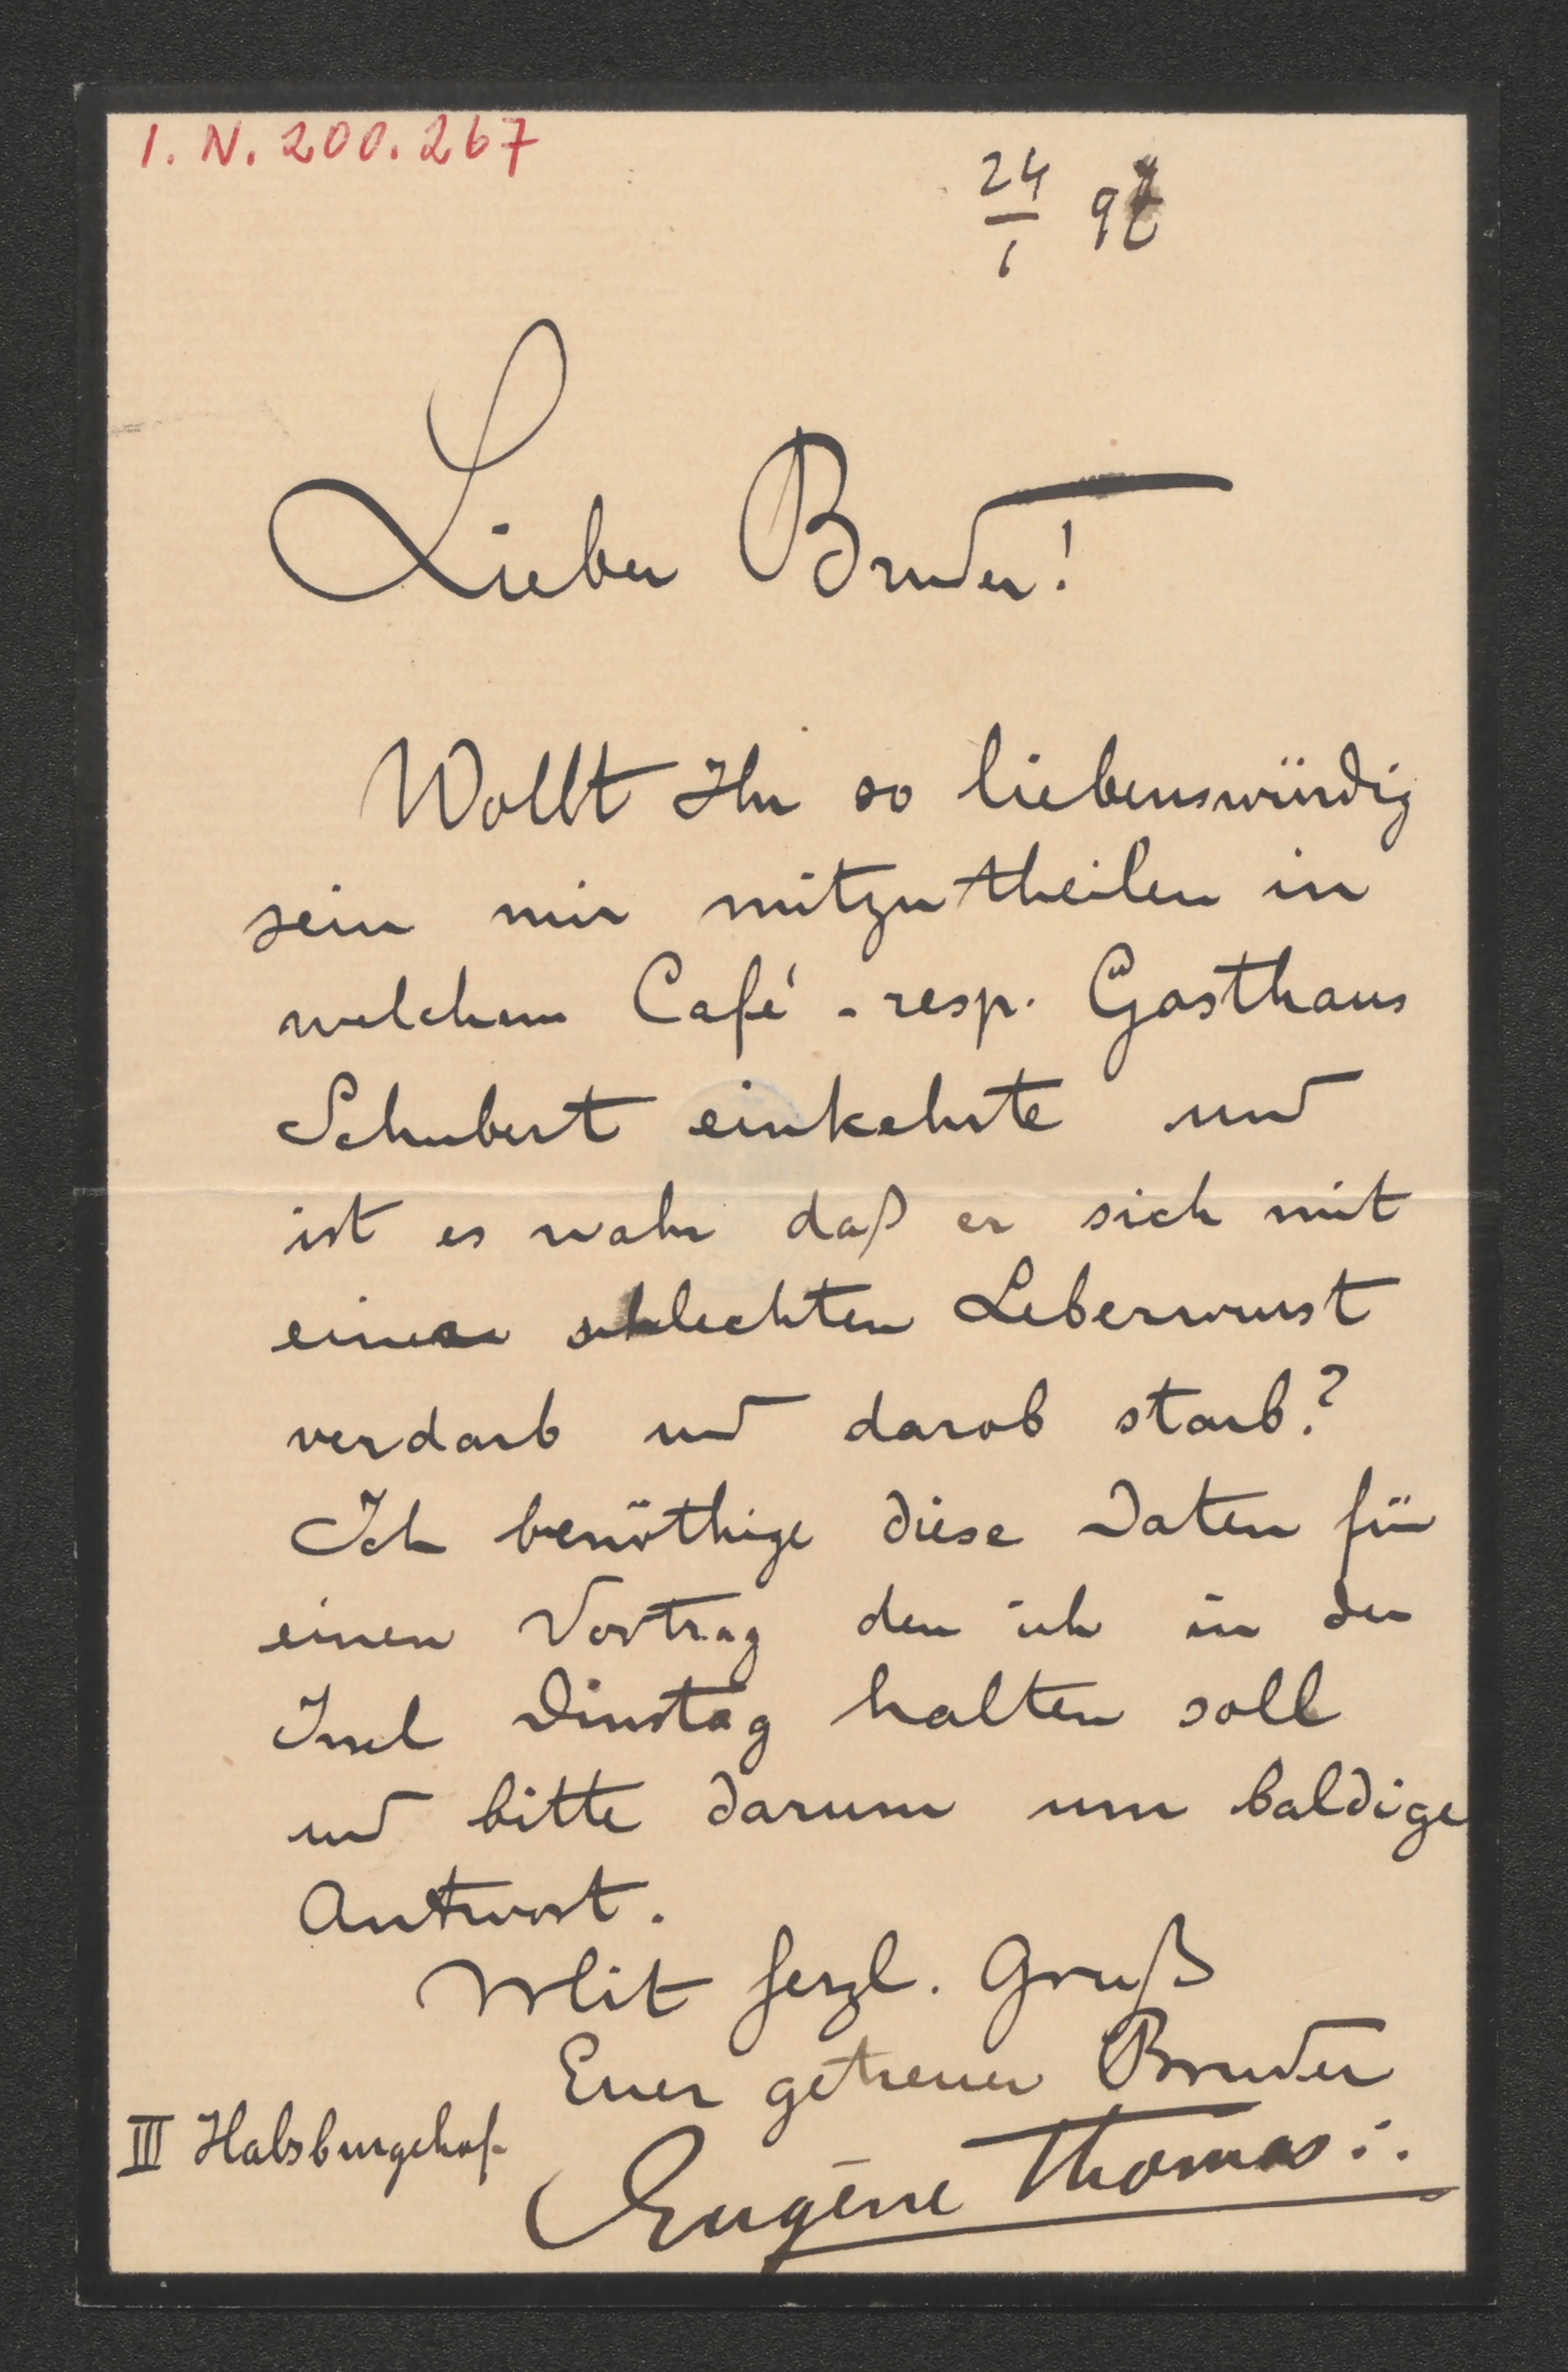 I. N. 200.267
24/1 97
Lieber Bruder!
Wollt Ihr so liebenswürdig
sein mir mitzutheilen in
welchem Café - resp. Gasthaus
Schubert einkehrte und
ist es wahr daß er sich mit
einer schlechten Leberwurst
verdarb und darob starb?
Ich benöthige diese Daten für
einen Vortrag den ich in der
Insel Dinstag halten soll
und bitte darum um baldige
Antwort.
Mit herzl. Gruß
Euer getreuer Bruder
III Habsburgehof.
Eugène Thomas :.